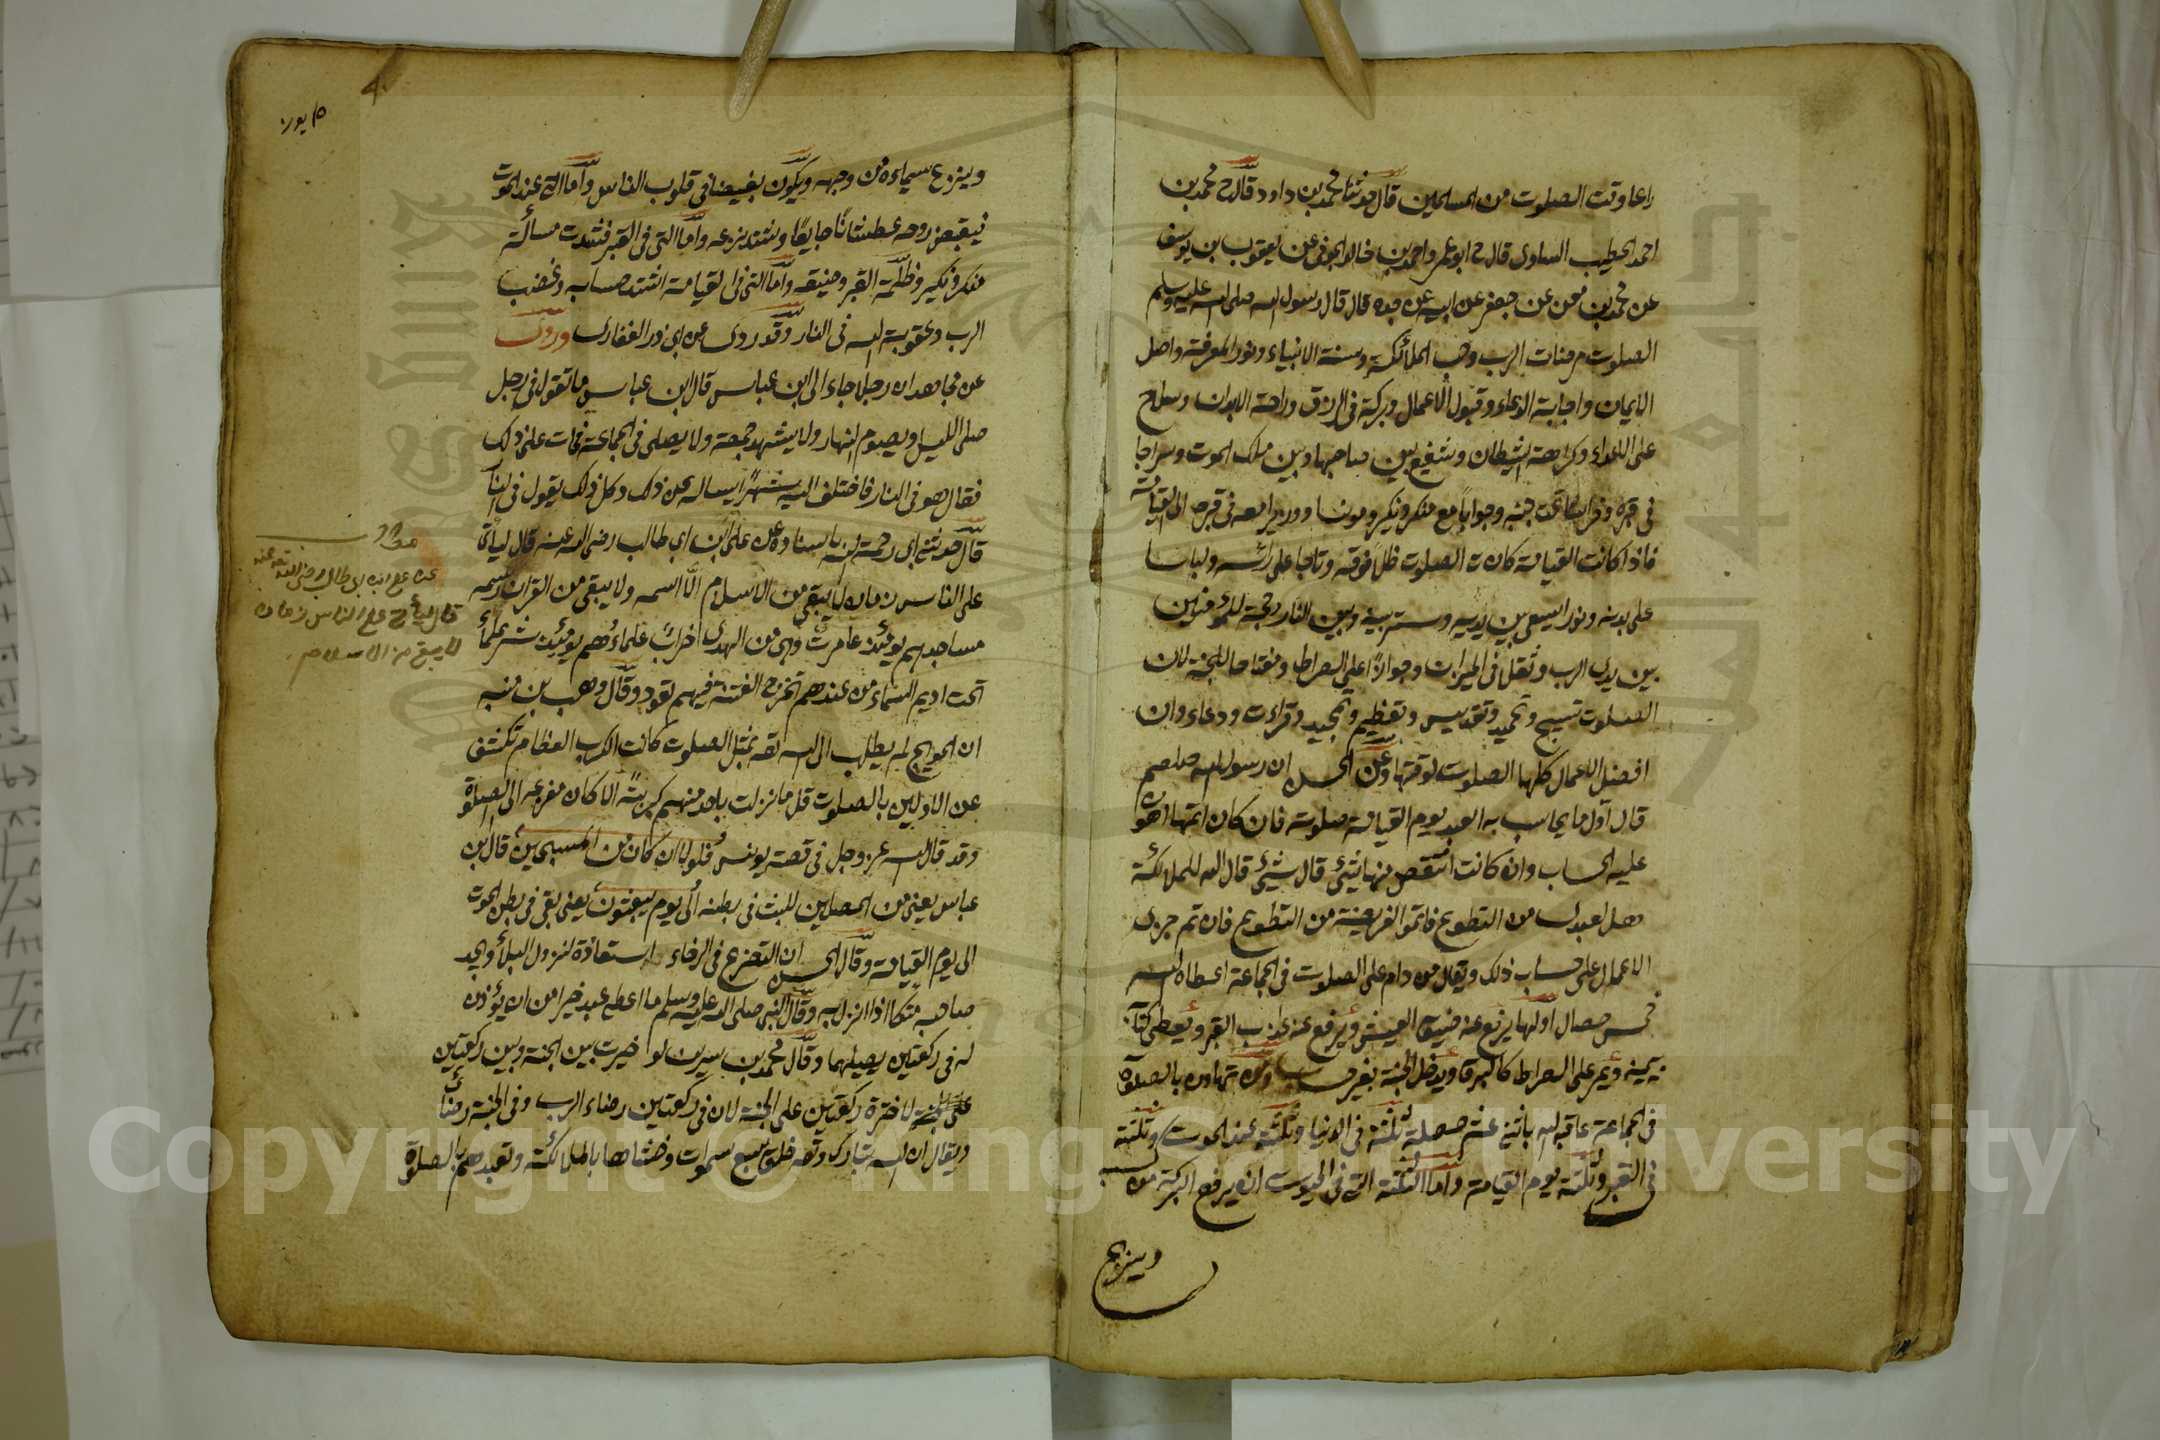 راعا وقت الصلوت من المسلمين قال حدثنا محمد بن داود قال ح محمد بن
احمد الخطيب الساوى قال ح ابو عمر واحمد بن خالد عن يعقوب بن يوسف
عن محمد بن معن عن جعفر عن ابيه عن جده قال قال رسول الله صلى الله عليه وسلم
الصلوت مرضات الرب وحب الملائكة وسنة الانبياء ونور المعرفة واصل
الايمان واجابة الدعاء وقبول الاعمال وبركة فى الرزق وراحة الابدان وسلاح
على الاعداء وكراهة الشيطان وشفيع بين صاحبها وبين ملك الموت وسراجا
فى قبره وفراشا تحت جنبه وجوابا مع منكر ونكير ومونسا وزيرا معه فى قبره الى القيامة
فاذا كانت القيامة كانت الصلوت ظلا فوقه وتاجا على رأسه ولباسا
على بدنه ونورا يسعى بين يديه وسترة بينه وبين النار وحجة للمؤمنين
بين يدى الرب وثقلا فى الميزان وجوازا على الصراط ومفتاحا للجنة لان
الصلوت تسبيح وتحميد وتقديس وتعظيم وتمجيد وقراءت ودعاء وان
افضل الاعمال كلها الصلوت لوقتها وعن الحسن ان رسول الله صلعم
قال اول ما يحاسب به العبد يوم القيامة صلوته فان كان اتمها اهون
عليه الحساب وان كانت انتقص منها شيئ قال شيئ قال الله للملائكة
هل لعبدى من التطوع فاتموا الفريضة من التطوع فان تم جرى
الاعمال على حساب ذلك ويقال من دام على الصلوت فى الجماعة اعطاه الله
خمس خصال اولها يرفع عنه ضيق العيش ويرفع عنه عذاب القبر ويعطى كتابه
بيمينه ويمر على الصراط كالبرق ويدخل الجنة بغير حساب ومن تهاون بالصلوة
فى الجماعة عاقبه الله باثنى عشر خصلة ثلثة فى الدنيا وثلثة عند الموت وثلثة
فى القبر وثلثة يوم القيامة واما الثلثة التى فى الحيوت ان يرفع البركة من كسبه
وينزع
وينزع سيماءه من وجهه ويكون بغيضا فى قلوب الناس واما التى عند الموت
فيقبض روحه عطشانا جايعا ويشتد نزعه واما التى فى القبر فشدت مسألة
منكر ونكير وظلمة القبر وضيقه واما التى فى القيامة اشتد حسابه وغضب
الرب وعقوبة الله فى النار وقد روى عن ابى ذر الغفارى وروى
عن مجاهد ان رجلا جاء الى ابن عباس قال ابن عباس ما تقول فى رجل
صلى الليل ويصوم النهار ولا يشهد جمعة ولا يصلى فى الجماعة فمات على ذلك
فقال هو فى النار فاختلف اليه شهرا يساله عن ذلك وكل ذلك يقول فى النار
قال حدثنى ابى رحمه الله باسناده عن على ابن ابى طالب رضى الله عنه قال ليأتى
على الناس زمان لا يبقى من الاسلام الا اسمه ولا يبقى من القران رسمه
مساجدهم يومئذ عامرت وهى من الهدى اخراب علماءهم يومئذ شر علماء
تحت اديم السماء من عندهم تخرج الفتنة فيهم تعود وقال وهب بن منبه
ان الحوايج لم يطلب الى الله تعه بمثل الصلوت كانت الكرب العظام تكشف
عن الاولين بالصلوت قل ما نزلت باحد منهم كربة الا كان مفزعه الى الصلوة
وقد قال الله عز وجل فى قصة يونس فلولا ان كان من المسبحين قال ابن
عباس يعنى من المصلين للبث فى بطنه الى يوم يبعثون يعنى بقى فى بطن الحوت
الى يوم القيامة وقال الحسن ان التضرع فى الرخاء استعاذة لنزول البلاء ويجد
صاحبه متكا اذا نزل به وقال النبى صلى الله عليه وسلم ما اعطى عبد خيرا من ان يؤذن
له فى ركعتين يصليهما وقال محمد بن سيرين لو خيرت بين الجنة وبين ركعتين
لاخترة ركعتين على الجنة لان فى ركعتين رضاء الرب وفى الجنة رضائى
ويقال ان الله تبارك وتعه خلق سبع سموات وخشاها بالملائكة وتعبدهم بالصلوة
عن على ابن ابى طالب رضى الله تعه عنه
قال ليأتى على الناس زمان
لا يبقى من الاسلام
Copyright © King Saud University